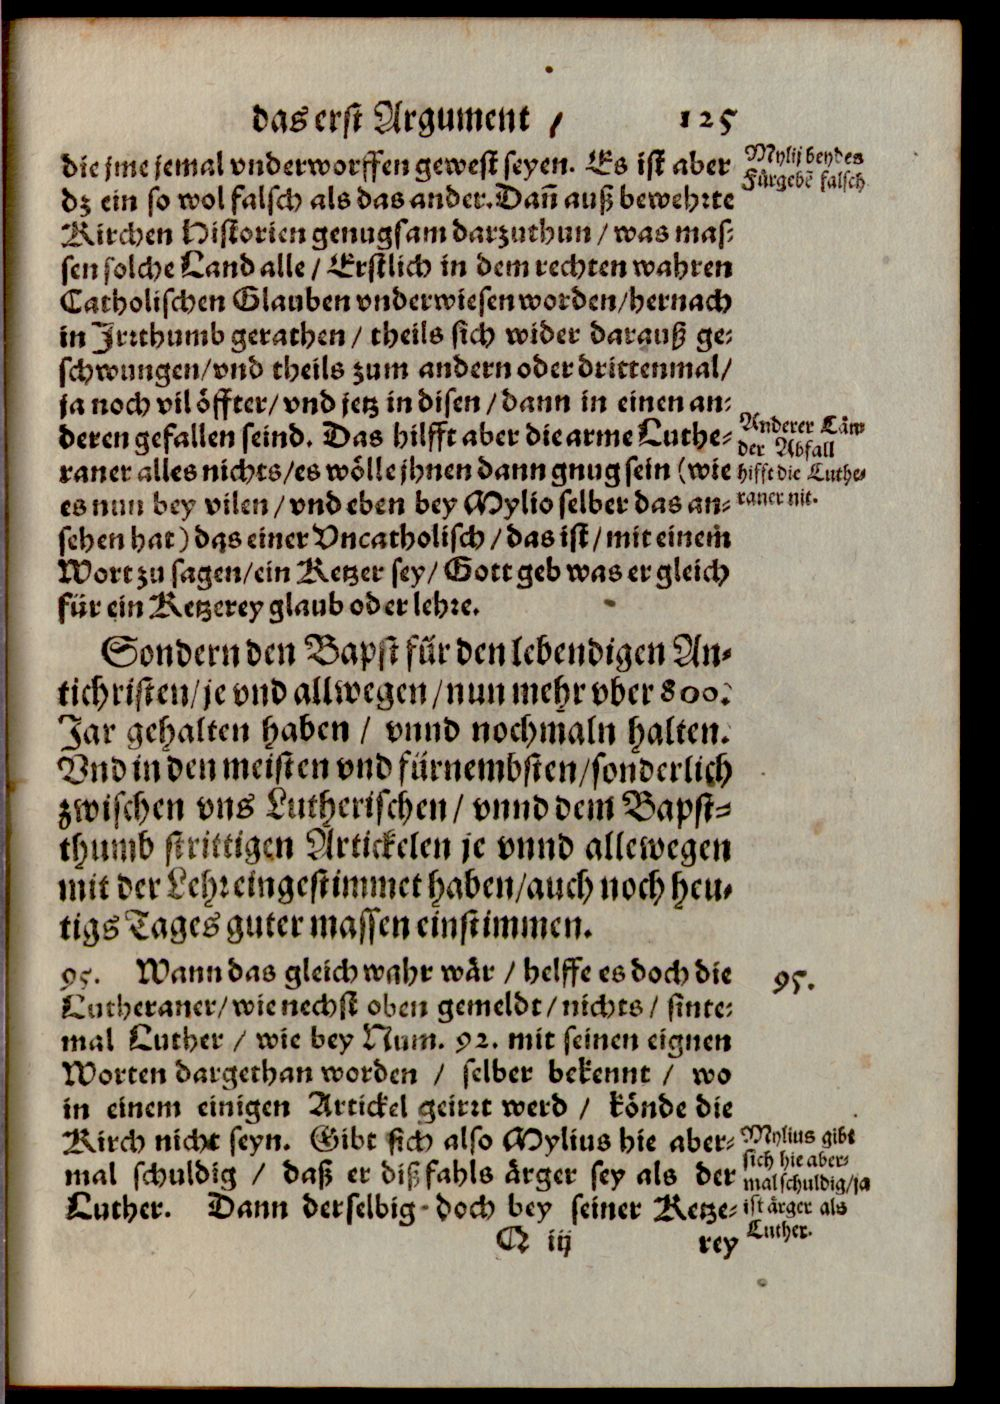 das erst Argument / 125
die jme jemal vnderworffen gewest seyen. Es ist aber
dz ein so wol falsch als das ander. Dañ auß bewehrte
Kirchen Historien genugsam darzuthun / was mas-
sen solche Land alle / Erstlich in dem rechten wahren
Catholischen Glauben vnderwiesen worden/hernach
in Jrrthumb gerathen / theils sich wider darauß ge-
schwungen/vnd theils zum andern oder drittenmal/
ja noch vil öffter/vnd jetz in disen / dann in einen an-
deren gefallen seind. Das hilfft aber die arme Luthe-
raner alles nichts/es wölle jhnen dann gnug sein (wie
es nun bey vilen / vnd eben bey Mylio selber das an-
sehen hat) das einer Vncatholisch / das ist / mit einem
Wort zu sagen/ein Ketzer sey/ Gott geb was er gleich
für ein Ketzerey glaub oder lehre.
Mylij beydes
Fürgebẽ falsch
Anderer Län-
der Abfall
hifft die Luthe-
raner nit.
Sondern den Bapst für den lebendigen An-
tichristen/je vnd allwegen/nun mehr vber 800.
Jar gehalten haben / vnnd nochmaln halten.
Vnd in den meisten vnd fürnembsten/sonderlich
zwischen vns Lutherischen/ vnnd dem Bapst-
thumb strittigen Artickelen je vnnd allewegen
mit der Lehr eingestimmet haben/auch noch heu-
tigs Tages guter massen einstimmen.
95. Wann das gleich wahr wär / helffe es doch die
Lutheraner/wie nechst oben gemeldt/nichts / sinte-
mal Luther / wie bey Num. 92. mit seinen eignen
Worten dargethan worden / selber bekennt / wo
in einem einigen Artickel geirrt werd / könde die
Kirch nicht seyn. Gibt sich also Mylius hie aber-
mal schuldig / daß er diß fahls ärger sey als der
Luther. Dann derselbig doch bey seiner Ketze-
95.
Mylius gibt
sich hie aber-
mal schuldig/ja
ist ärger als
Luther.
Q iij rey